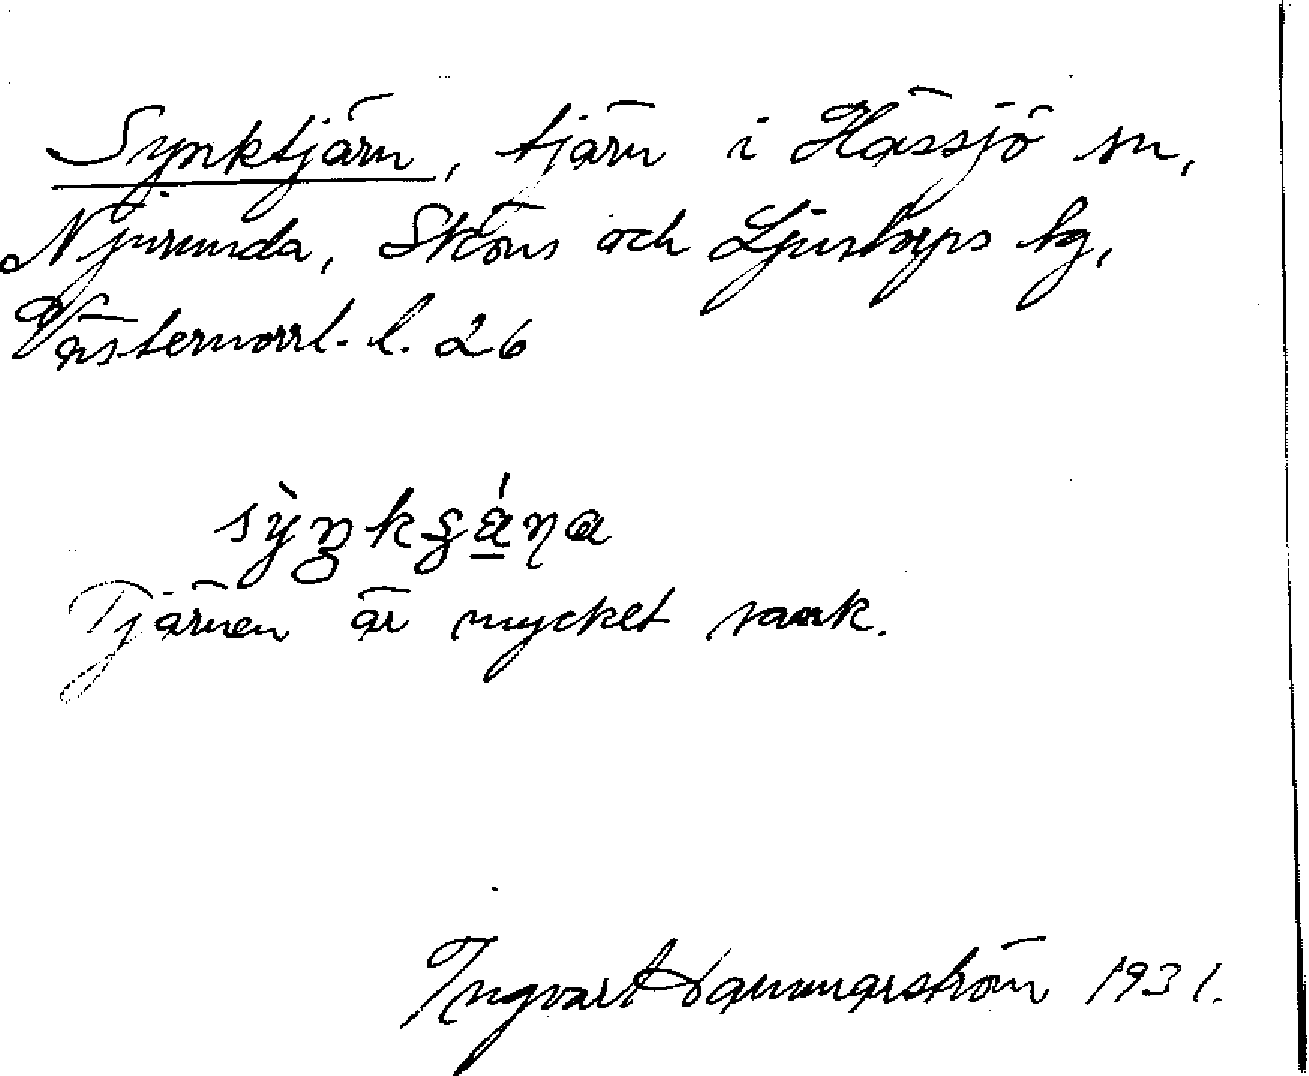 Synktjärn, tjärn i Hässjö sn,
Njurunda, Sköns och Ljustorps tg,
Västernorrl. l. 26
Tjärnen är mycket sank.
Ingvar Hammarström 1931.